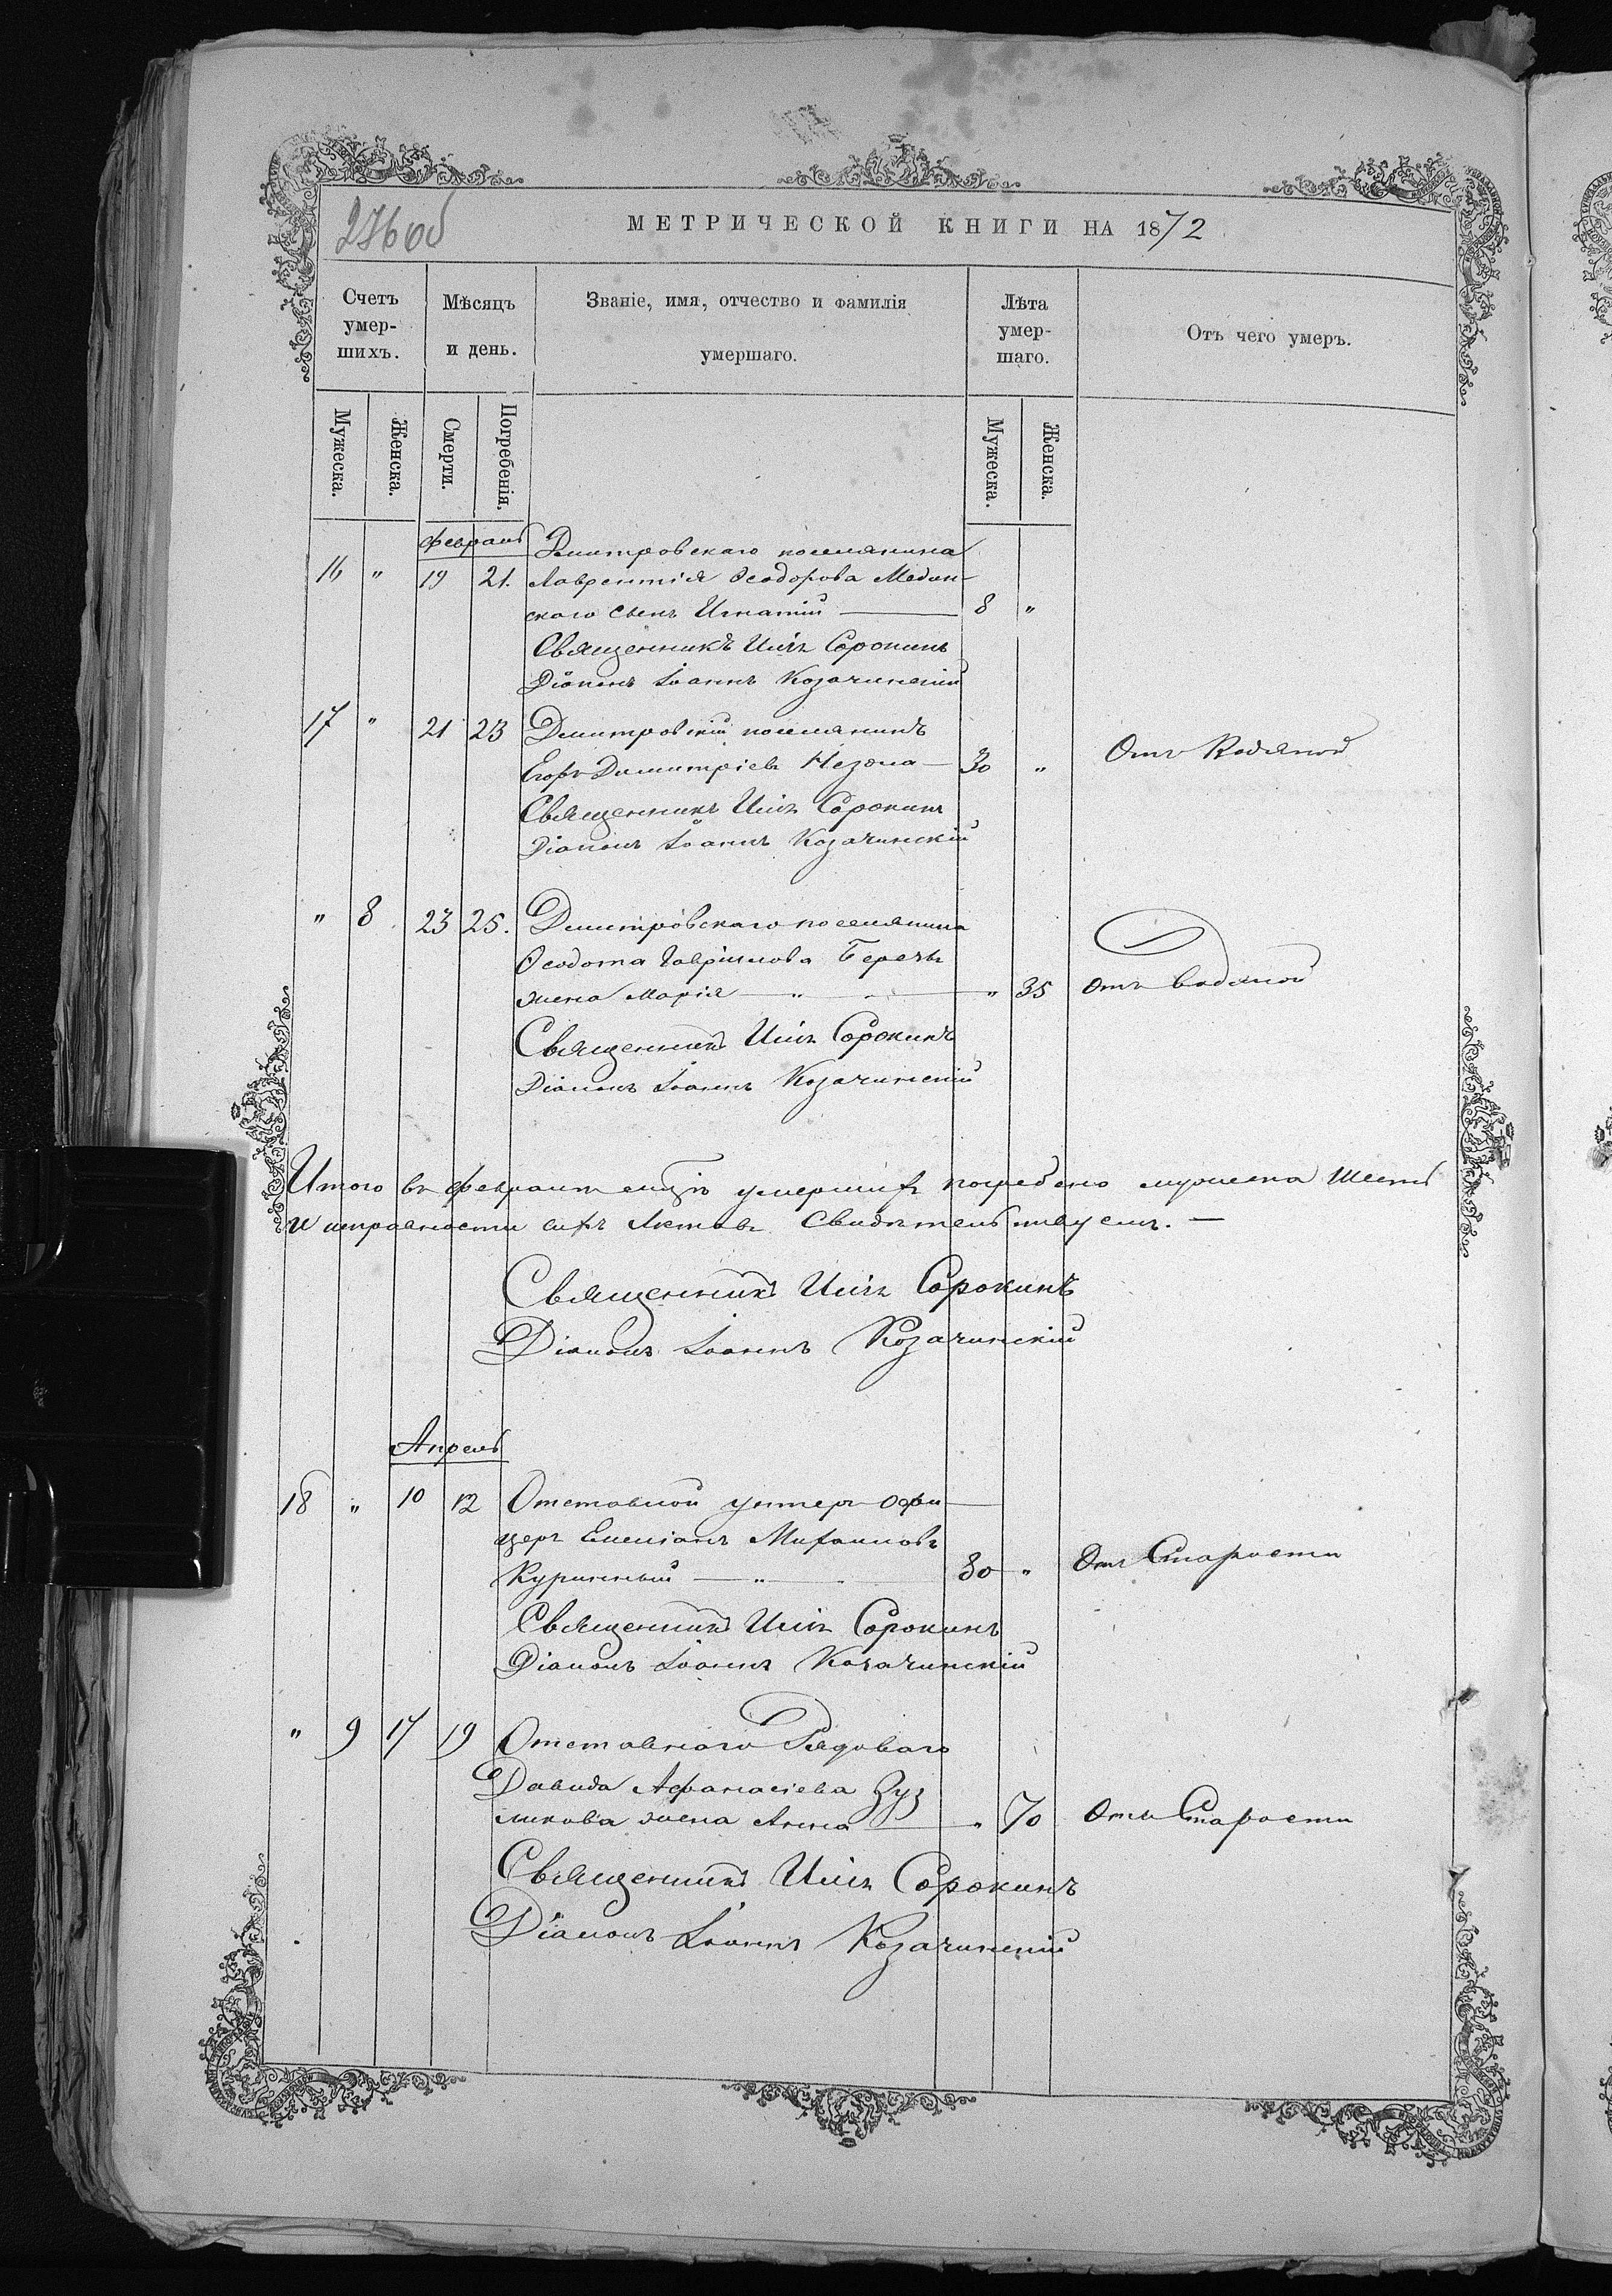 276 об
МЕТРИЧЕСКОЙ КНИГИ НА 1872
Счетъ умер-шихъ.
Мѣсяцъ и день.
Званіе, имя, отчество и фамилія умершаго.
Лѣта умер-шаго.
Отъ чего умеръ.
Мужеска. Женска. Смерти. Погребенія. Мужеска. Женска.
Февраль
Дмитровскаго поселянина
16 " 19 21. Лаврентія Ѳеодорова Медин-
скаго сынъ Игнатій 8 "
Священникъ Илія Сорокинъ
Діаконъ Іоаннъ Козачинскій
17 " 21 23 Дмитровскій поселянинъ
Егоръ Димитріевъ 30 " Отъ Водяной
Священникъ Илія Сорокинъ
Діаконъ Іоаннъ Козачинскій
" 8 23 25. Дмитровскаго поселянина
Ѳеодота Гавріилова
жена Марія " " 35 Отъ водяной
Священникъ Илія Сорокинъ
Діаконъ Іоаннъ Козачинскій
Итого въ февралѣ умершихъ погребено мужеска
и исправности сихъ Актовъ Свидѣтельствуемъ.
Священникъ Илія Сорокинъ
Діаконъ Іоаннъ Козачинскій
Апрель
18 " 10 12 Отставной унтеръ-офи
церъ Емеліанъ Михаиловъ
Куринный " 80 " Отъ Старости
Священникъ Илія Сорокинъ
Діаконъ Іоаннъ Козачинскій
" 9 17 19 Отставнаго Рядоваго
Давида Афанасіева Зуз
ликова жена Анна " 70 Отъ Старости
Священникъ Илія Сорокинъ
Діаконъ Іоаннъ Козачинскій